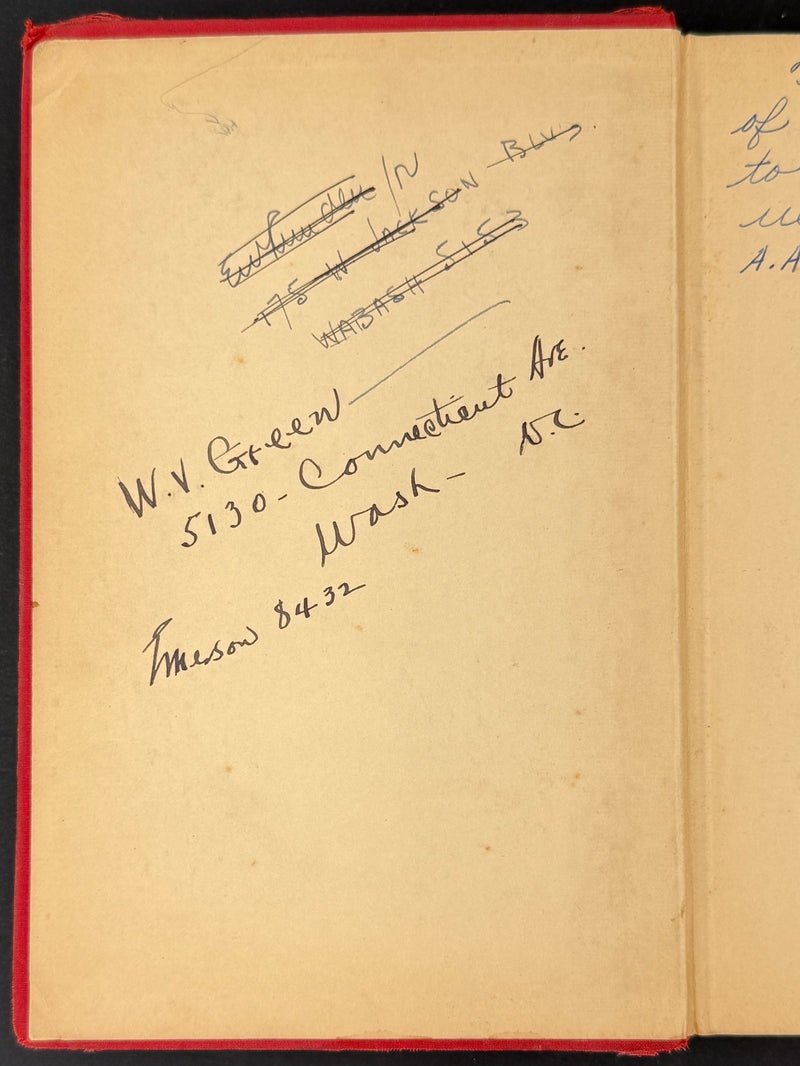 175 W JACKSON BLVD.
WABASH 5153
W.V. Green
5130 - Connecticut Ave.
Wash - D.C.
Emerson 8432
of
to
A.A